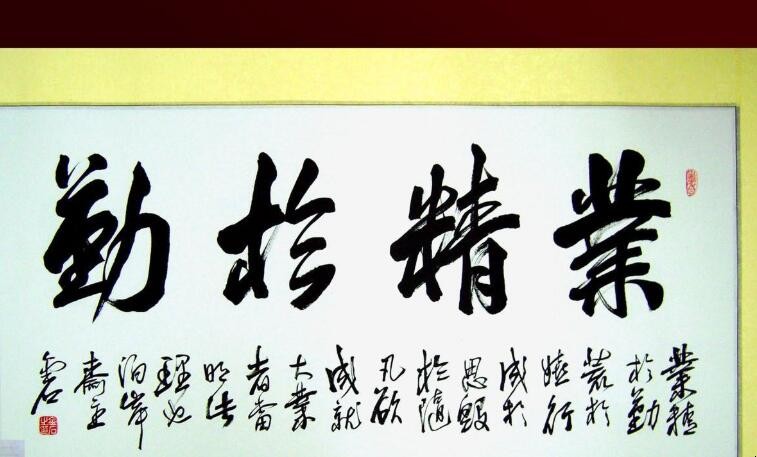 業精於勤
業精
於勤
荒於
嬉行
成於
思毀
於隨
凡欲
成就
大業
者當
明
理也
泊岸
齋主